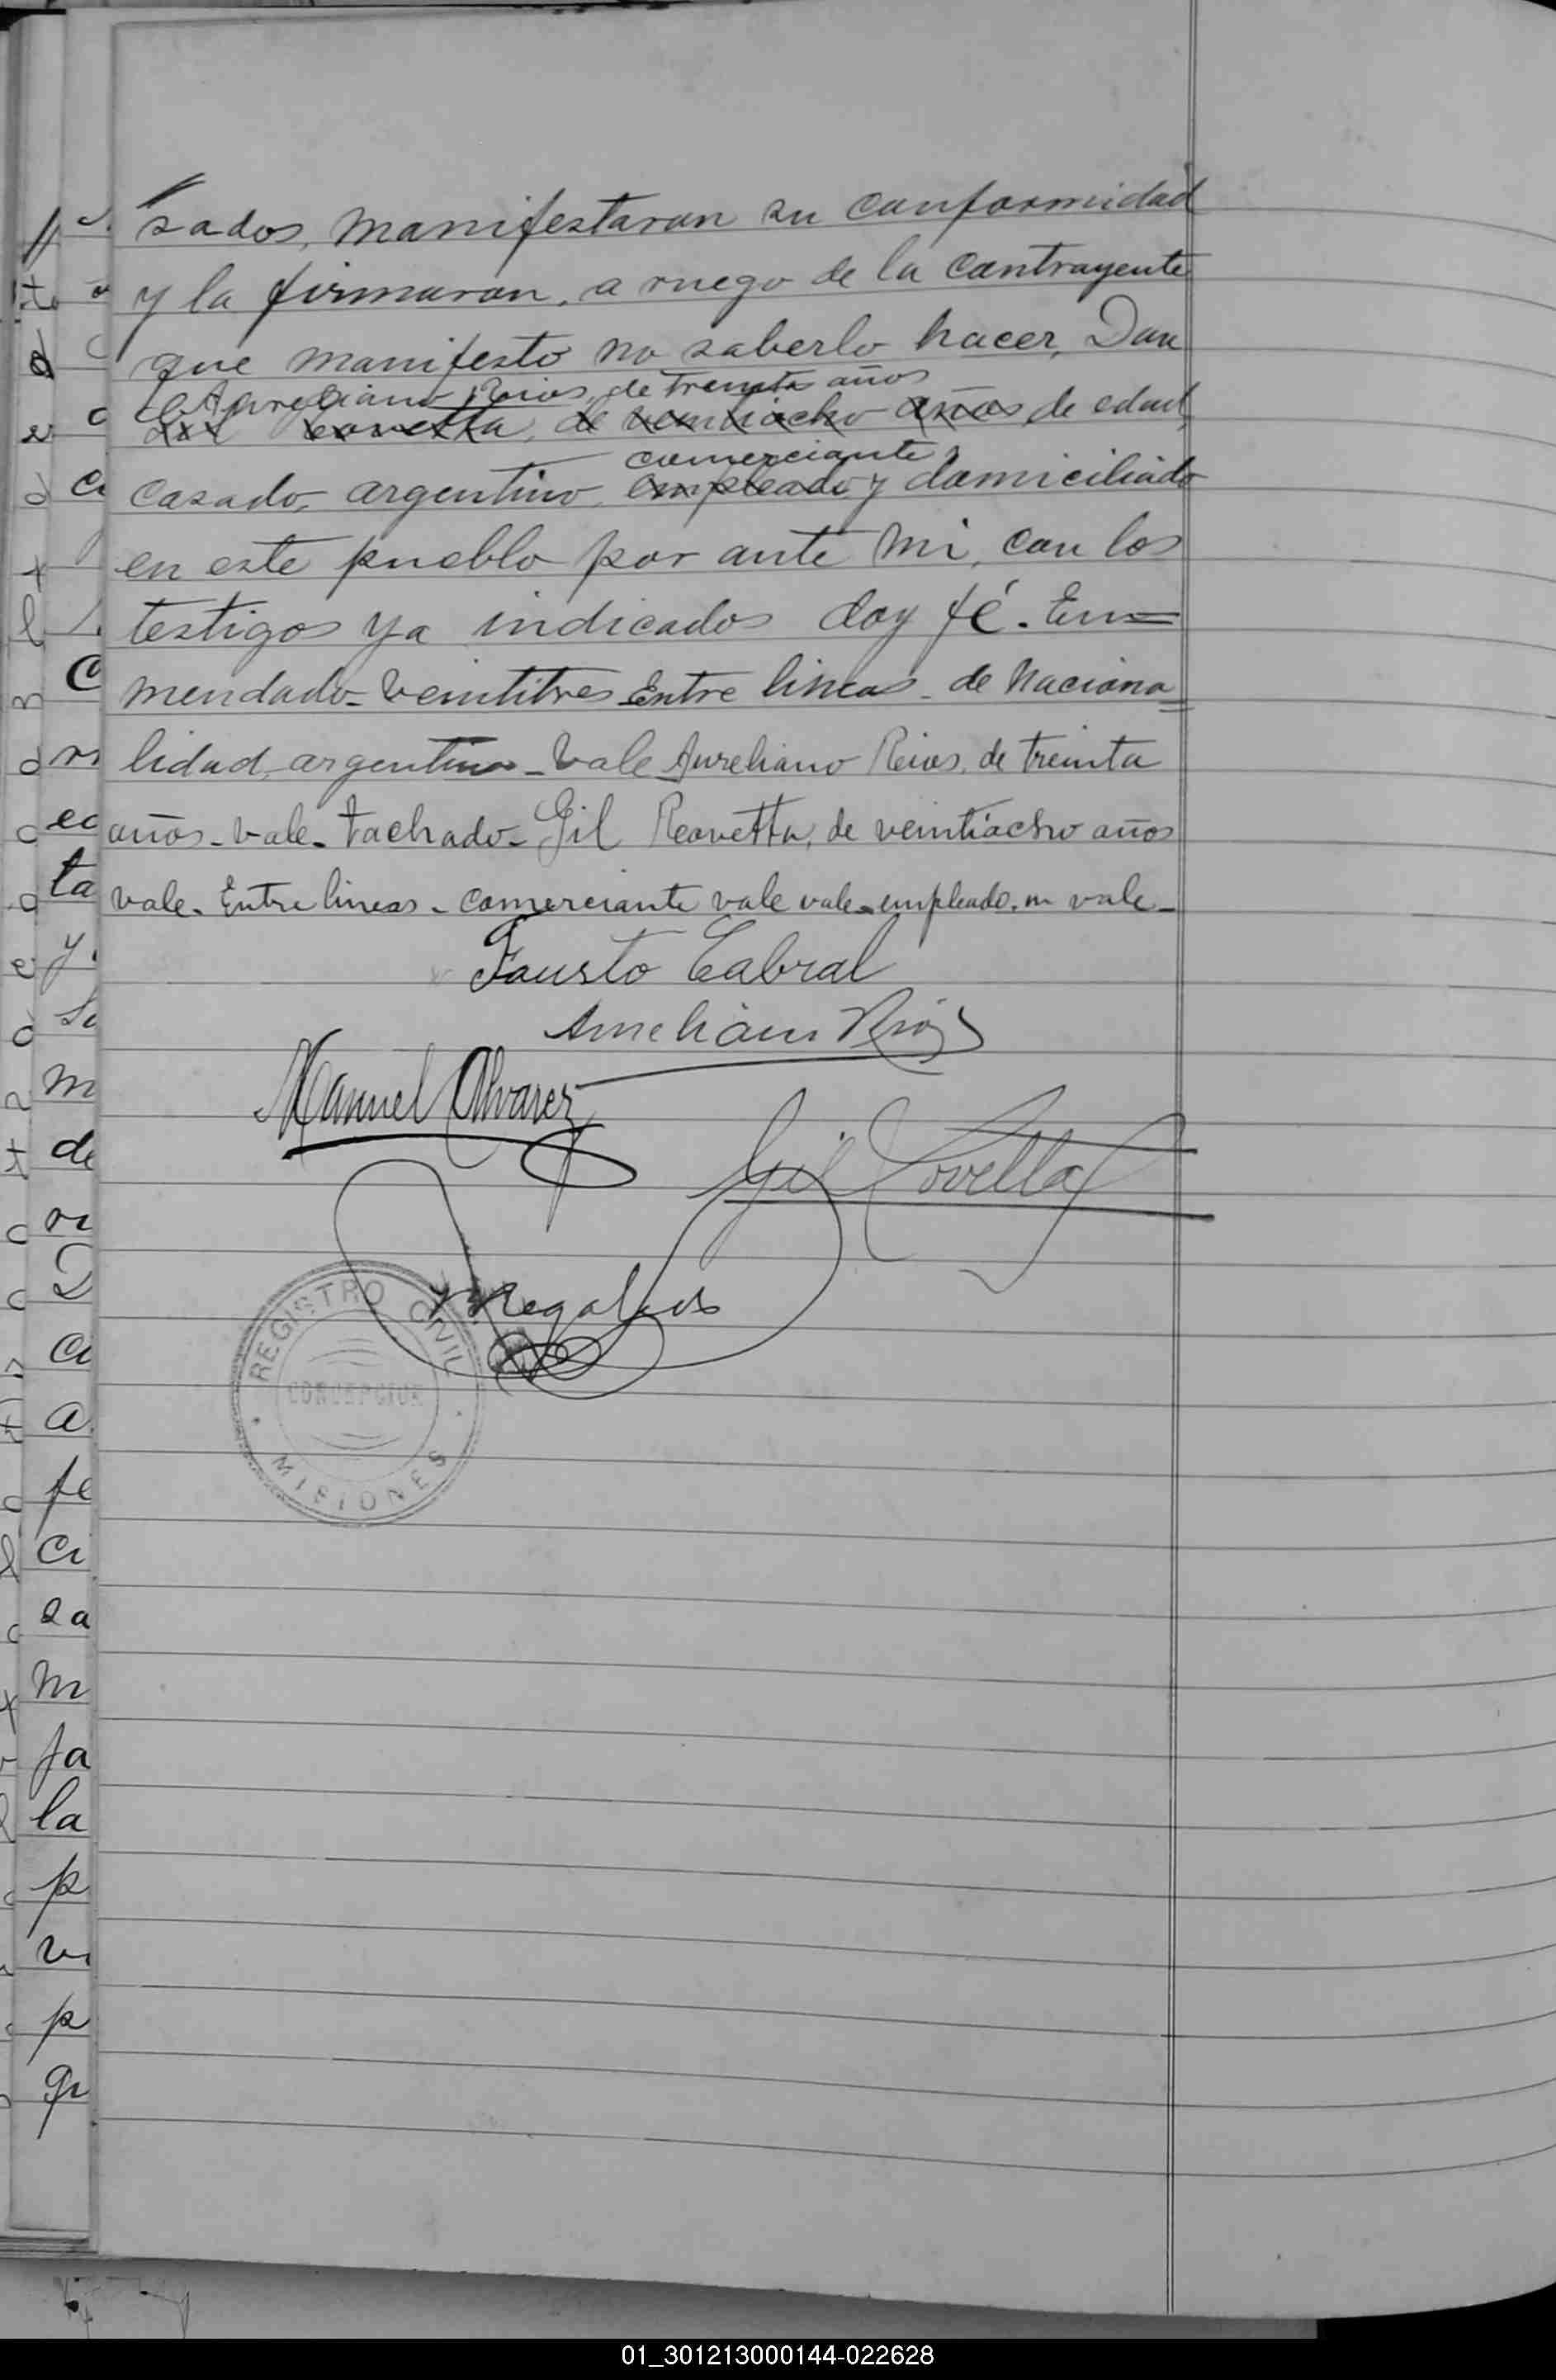 sados, manifestaron su conformidad
y la firmaron, a ruego de la contrayente
que manifesto no saberlo hacer, Don
Aureliano Rios, de treinta años
Gil Rovetta, de veintiocho años, de edad,
comerciante
casado, argentino, empleado y domiciliado
en este pueblo por ante mi, con los
testigos ya indicados doy fé. En=
mendado - veintitres Entre lineas - de naciona=
lidad, argentina - Vale Aureliano Reios, de treinta
años - vale - tachado - Gil Reovetta, de veintiocho años
vale - Entre lineas - comerciante vale vale - empleado. no vale -
Fausto Cabral
Aureliano Rios
Manuel Alvarez
Gil Rovetta
REGISTRO CIVIL
CONCEPCION
MISIONES
m
de
la
p
01_301213000144-022628